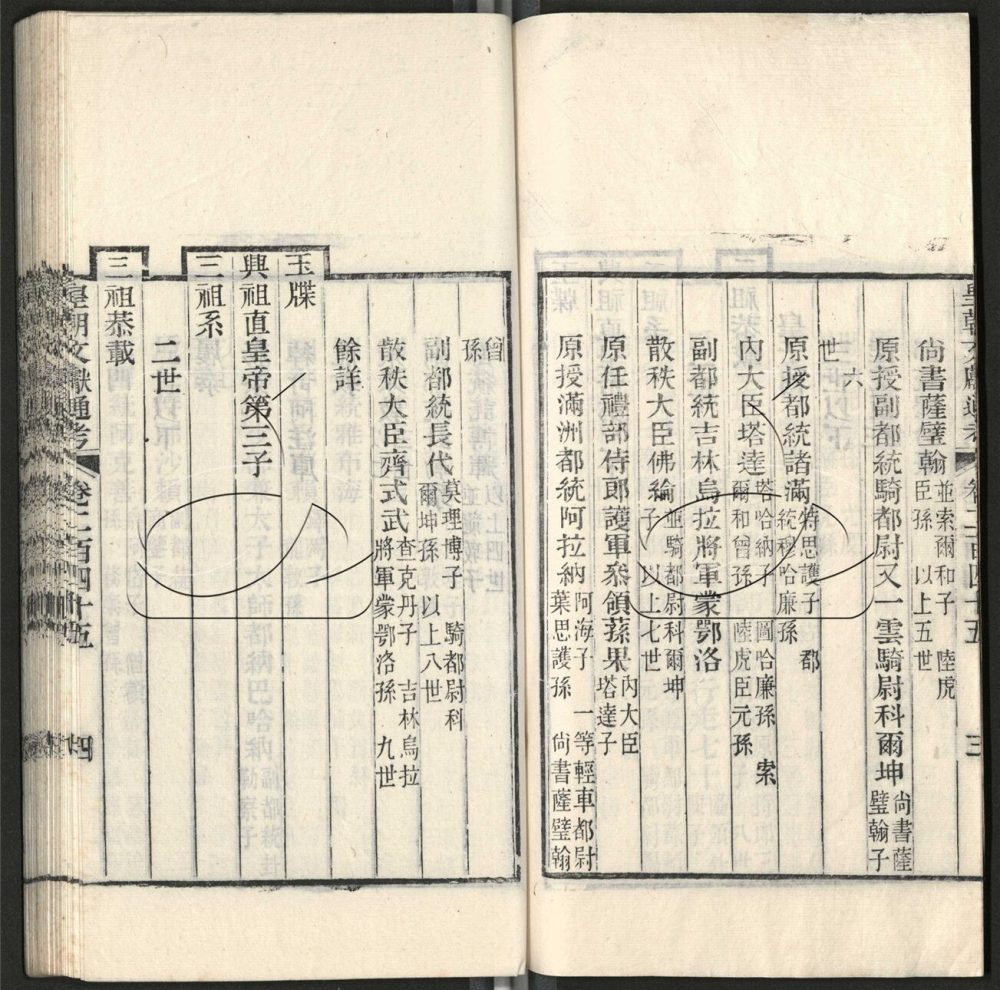 皇朝文獻通考 卷二百四十五 三
尚書薩璧翰 並索爾和子 陸虎
臣孫 以上五世
原授副都統騎都尉又一雲騎尉科爾坤 尚書薩
璧翰子
六
世
原授都統諸滿 特思護子 都
統穆哈廉孫
內大臣塔達 塔哈納子 圖哈廉孫 索
爾和曾孫 陸虎臣元孫
副都統吉林烏拉將軍蒙鄂洛
散秩大臣佛綸 並騎都尉科爾坤
子 以上七世
原任禮部侍郎護軍叅領蓀果 內大臣
塔達子
原授滿洲都統阿拉納 阿海子 一等輕車都尉
葉思護孫 尚書薩璧翰
曾
孫
副都統長代 莫理博子 騎都尉科
爾坤孫 以上八世
散秩大臣齊式武 查克丹子 吉林烏拉
將軍蒙鄂洛孫 九世
餘詳
玉牒
興祖直皇帝第三子
三祖系
二世
三祖恭載
皇朝文獻通考 卷二百四十五 四